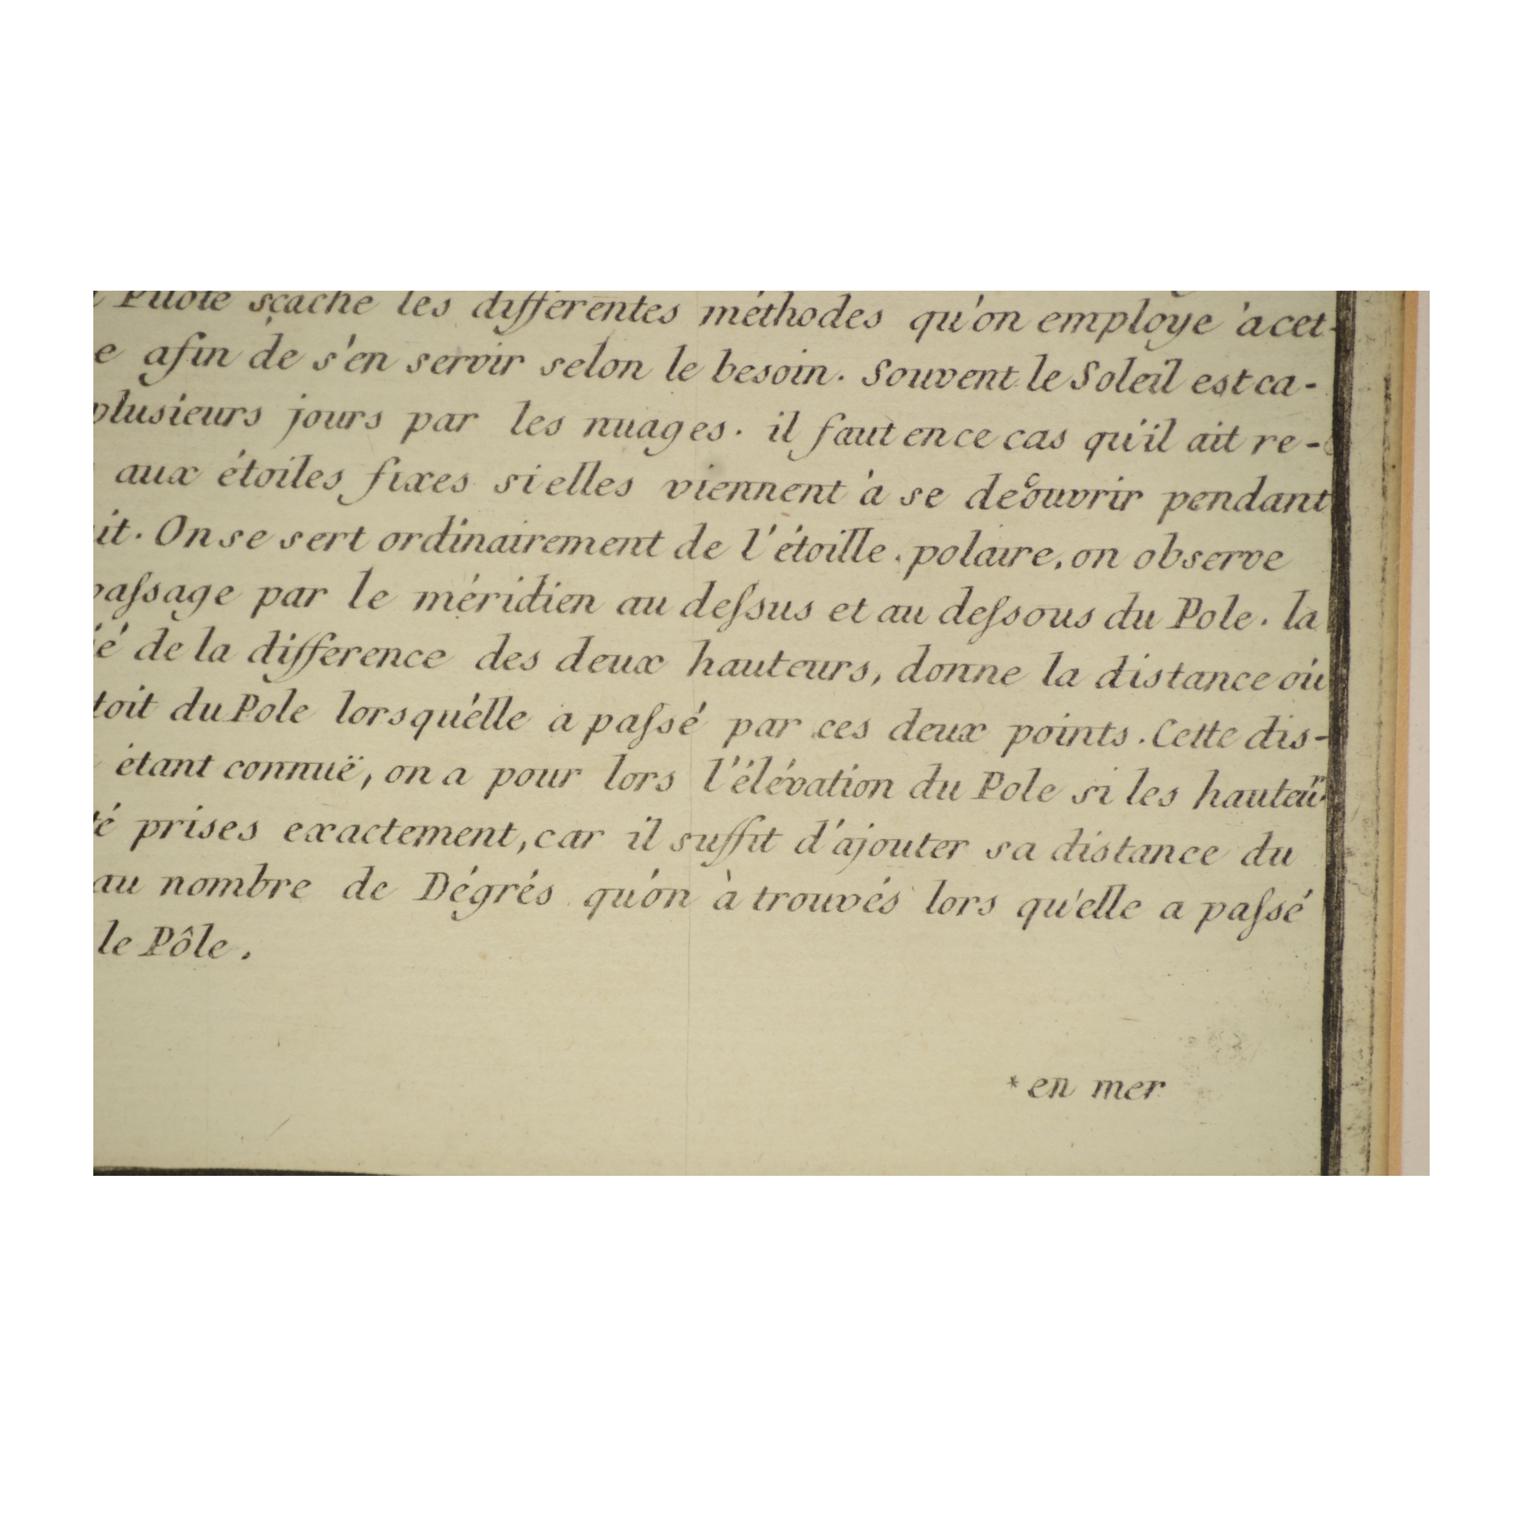 Pilote sçache les différentes méthodes qu'on employe à cet-
e afin de s'en servir selon le besoin. Souvent le Soleil est ca-
plusieurs jours par les nuages. il faut en ce cas qu'il ait re-
aux étoiles fixes si elles viennent à se découvrir pendant
it. On se sert ordinairement de l'étoille polaire, on observe
paſsage par le méridien au deſsus et au deſsous du Pole. la
ié de la différence des deux hauteurs, donne la distance où
toit du Pole lorsqu'élle a paſsé par ces deux points. Cette dis-
étant connuë, on a pour lors l'élévation du Pole si les hauteurs
té prises exactement, car il suffit d'ajouter sa distance du
au nombre de Dégrés qu'on à trouvés lors qu'elle a paſsé
le Pôle.
*en mer